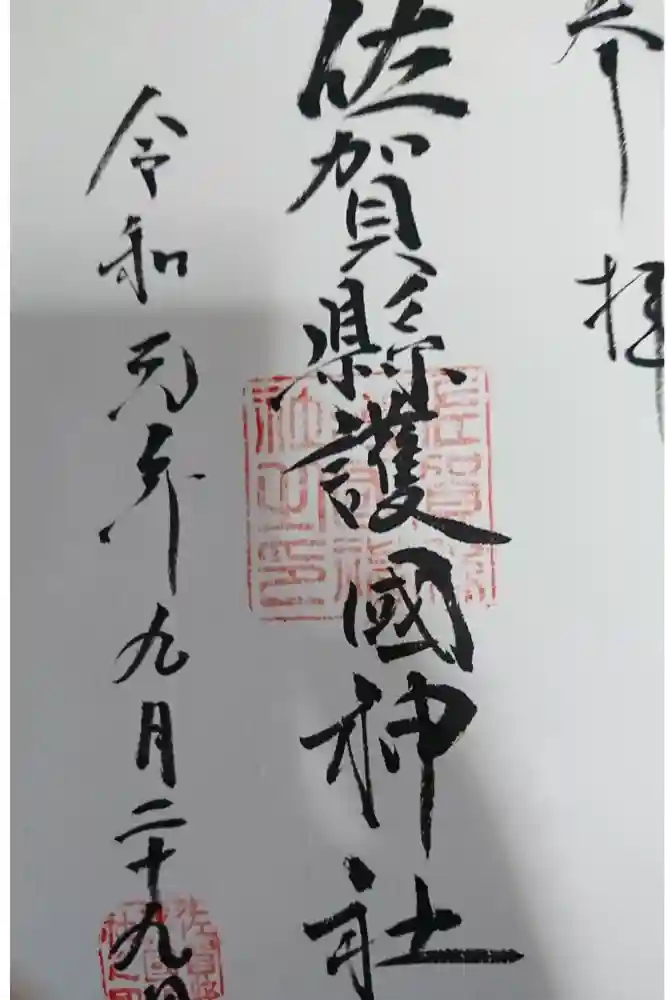 参拝
佐賀縣護國神社
令和元年九月二十九日